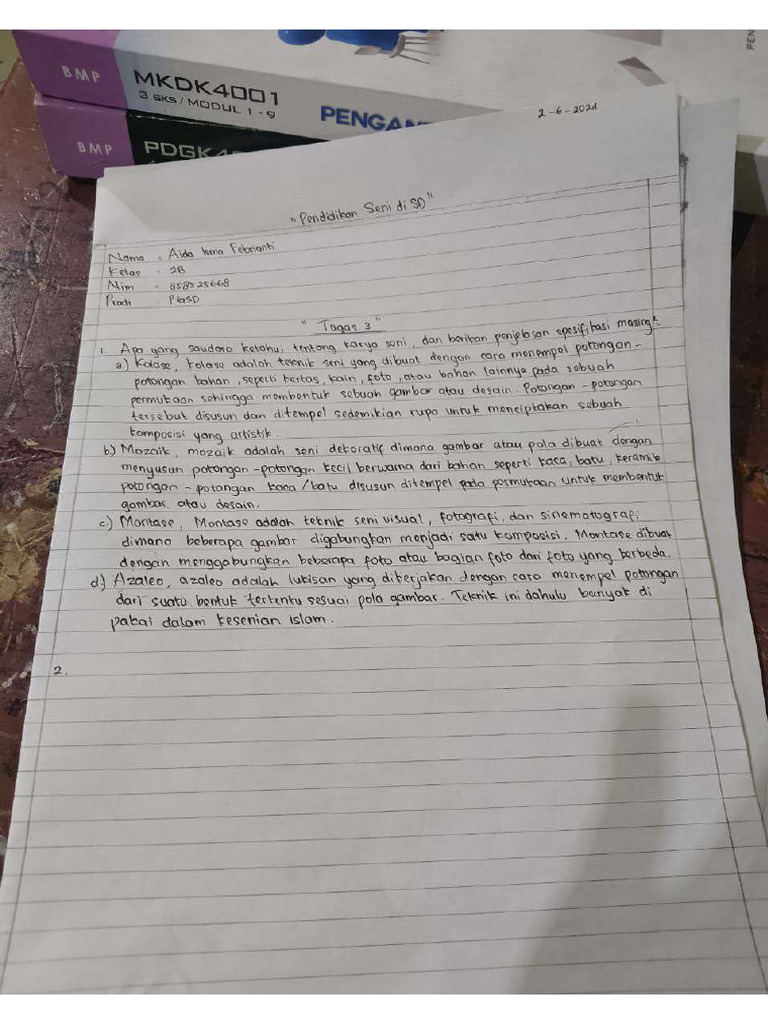 BMP
MKDK4001
3 SKS / MODUL 1 - 9
PENGAN
PEN
BMP
PDGK4
2-6-2024
"Pendidikan Seni di SD"
Nama : Aida Isma Febrianti
Kelas : 2B
Nim : 858525668
Prodi : PGSD
"Tugas 3"
1. Apa yang saudara ketahui, tentang karya seni, dan berikan penjelasan spesifikasi masing²:
a) Kolase, kolase adalah teknik seni yang dibuat dengan cara menempel potongan-
potongan bahan, seperti kertas, kain, foto, atau bahan lainnya pada sebuah
permukaan sehingga membentuk sebuah gambar atau desain. Potongan-potongan
tersebut disusun dan ditempel sedemikian rupa untuk menciptakan sebuah
komposisi yang artistik.
b) Mozaik, mozaik adalah seni dekoratif dimana gambar atau pola dibuat dengan
menyusun potongan-potongan kecil berwarna dari bahan seperti kaca, batu, keramik
potongan-potongan kaca/batu disusun ditempel pada permukaan untuk membentuk
gambar atau desain.
c) Montase, Montase adalah teknik seni visual, fotografi, dan sinematografi
dimana beberapa gambar digabungkan menjadi satu komposisi. Montase dibuat
dengan menggabungkan beberapa foto atau bagian foto dari foto yang berbeda.
d) Azaleo, azaleo adalah lukisan yang dikerjakan dengan cara menempel potongan
dari suatu bentuk tertentu sesuai pola gambar. Teknik ini dahulu banyak di
pakai dalam kesenian islam.
2.